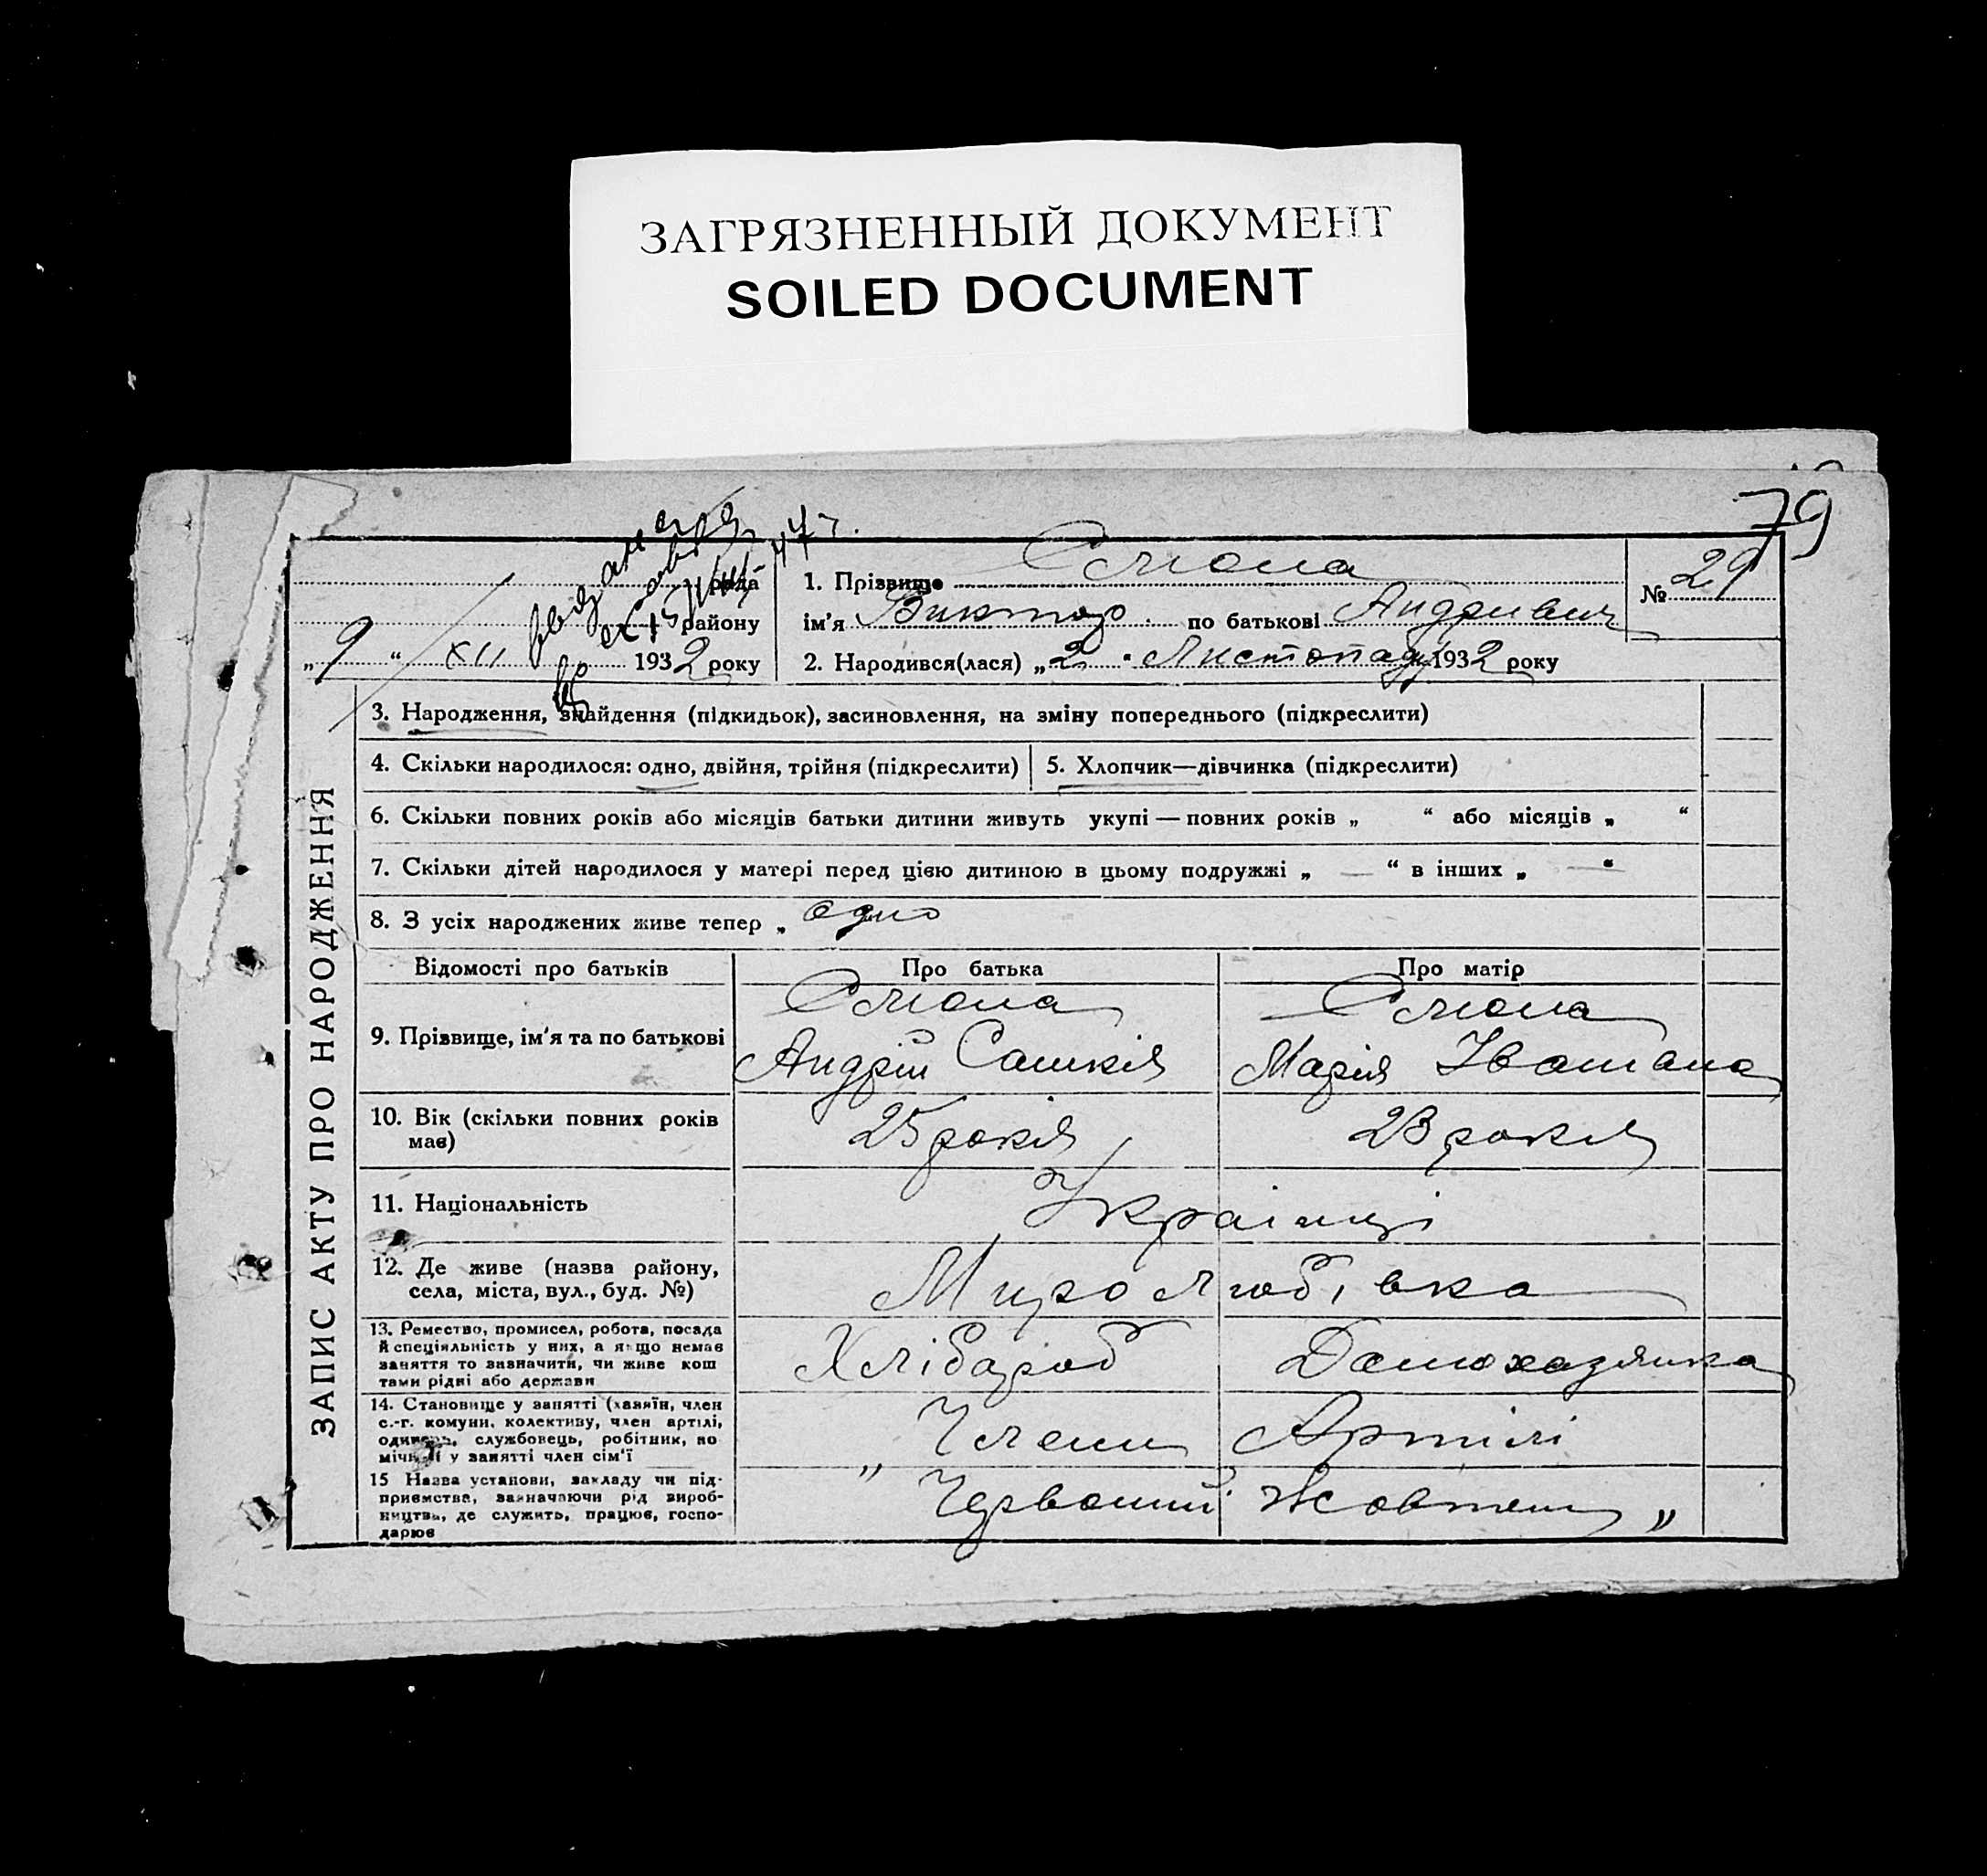 ЗАГРЯЗНЕННЫЙ ДОКУМЕНТ
SOILED DOCUMENT
79
рада
району
„9“ XII 1932 року
47 г.
1. Прізвище
№ 29
ім'я Виктор по батькові Андриевич
2. Народився(лася) „2“ Листопаду 1932 року
ЗАПИС АКТУ ПРО НАРОДЖЕННЯ
3. Народження, знайдення (підкидьок), засиновлення, на зміну попереднього (підкреслити)
4. Скільки народилося: одно, двійня, трійня (підкреслити)
5. Хлопчик—дівчинка (підкреслити)
6. Скільки повних років або місяців батьки дитини живуть укупі — повних років „ “ або місяців „ “
7. Скільки дітей народилося у матері перед цією дитиною в цьому подружжі „ — “ в інших „ — “
8. З усіх народжених живе тепер „ одно
Відомості про батьків
Про батька
Про матір
9. Прізвище, ім'я та по батькові
Андрій
Марія
10. Вік (скільки повних років
має)
25 років
23 років
11. Національність
Українці
12. Де живе (назва району,
села, міста, вул., буд. №)
Миролюбівка
13. Ремество, промисел, робота, посада
й спеціяльність у них, а якщо немає
заняття то зазначити, чи живе кош
тами рідні або держави
Хлібороб
Домохазяйка
14. Становище у занятті (хазяїн, член
с.-г. комуни, колективу, член артілі,
одинець, службовець, робітник, по
мічний у занятті член сім'ї
Члени Артілі
15 Назва установи, закладу чи під-
приємства, зазначаючи рід вироб-
ництва, де служить, працює, госпо-
дарює
„Червоний Жовтень„